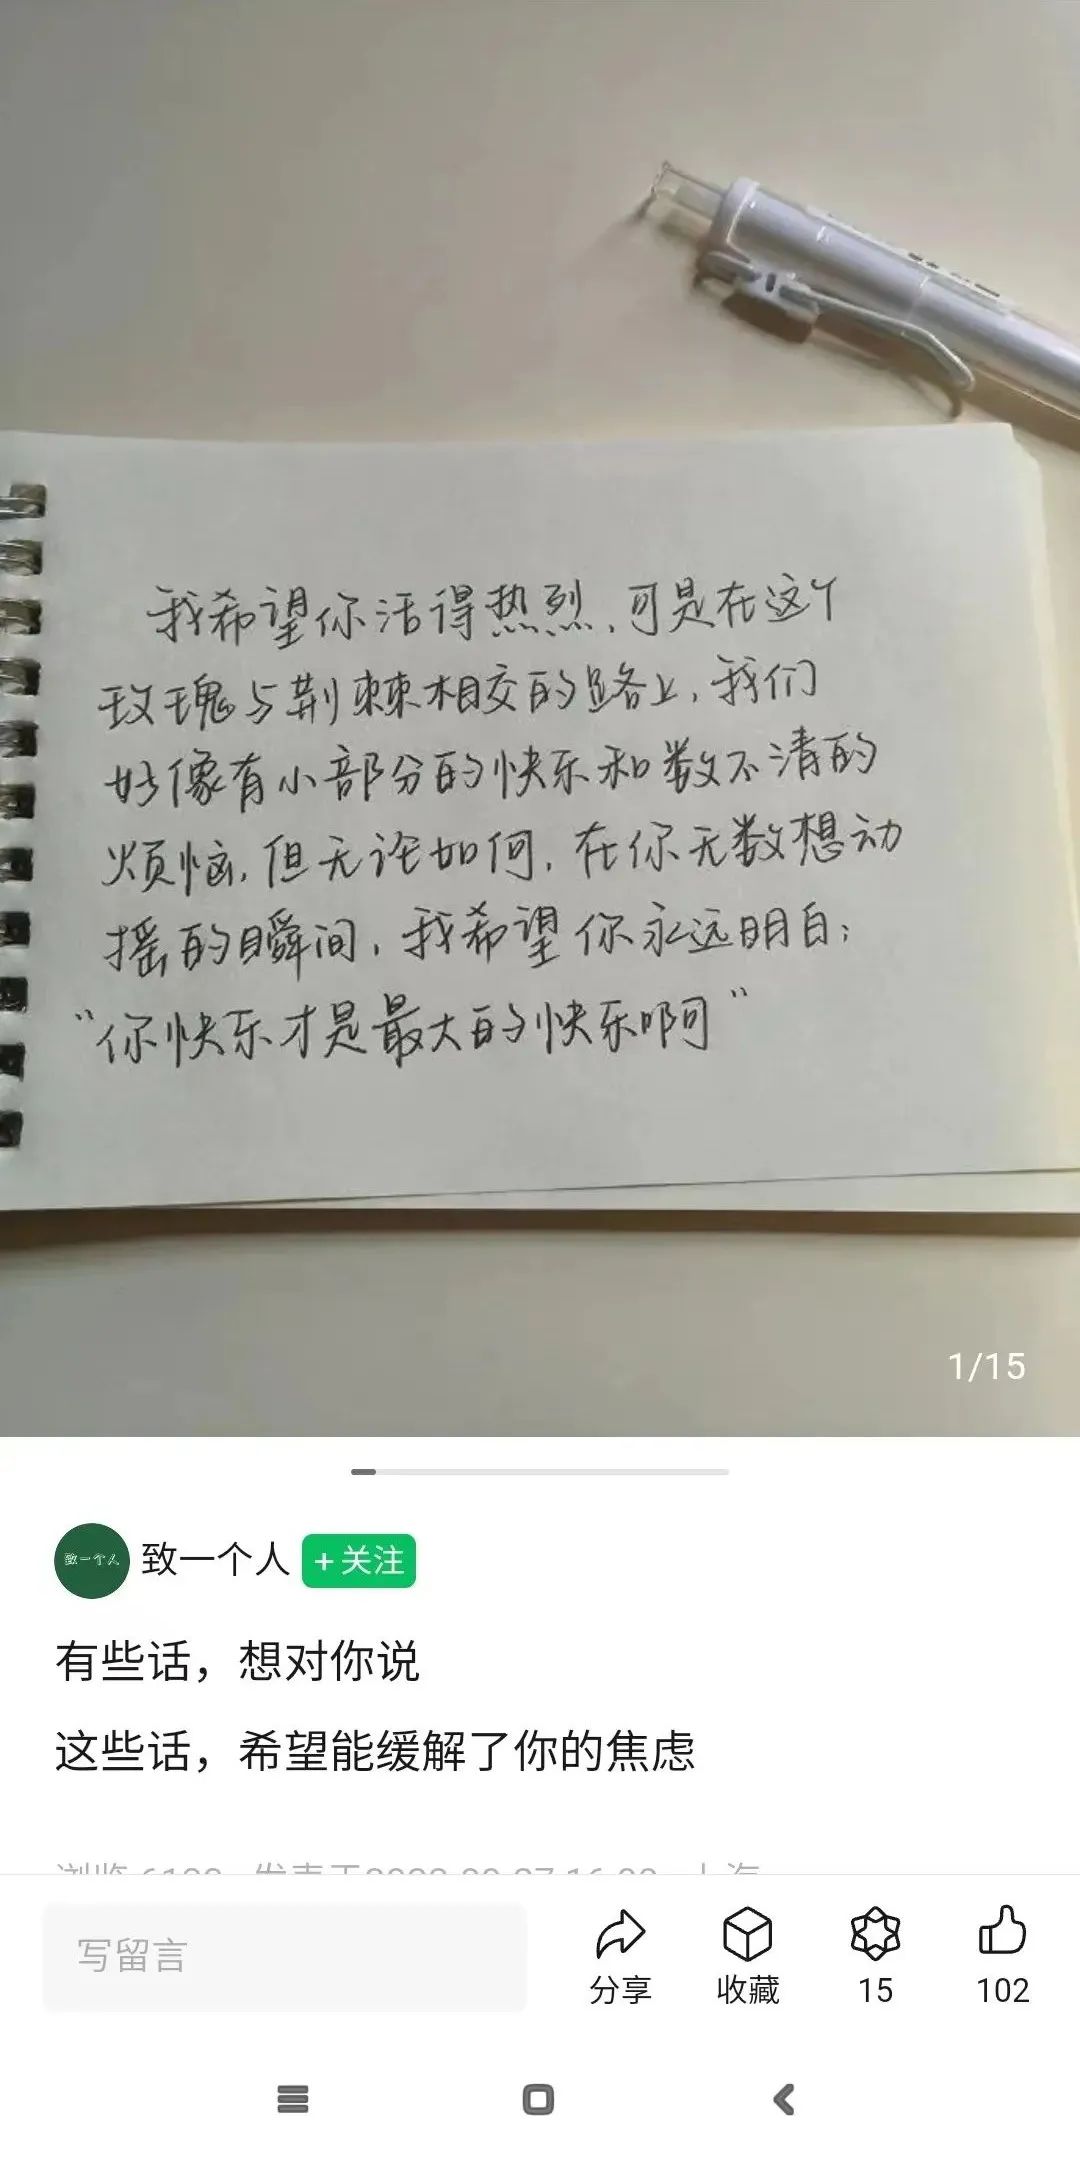 我希望你活得热烈,可是在这个
玫瑰与荆棘相交的路上,我们
好像有小部分的快乐和数不清的
烦恼,但无论如何,在你无数想动
摇的瞬间,我希望你永远明白:
“你快乐才是最大的快乐啊”
1/15
致一个人
致一个人
+关注
有些话，想对你说
这些话，希望能缓解了你的焦虑
写留言
分享
收藏
15
102